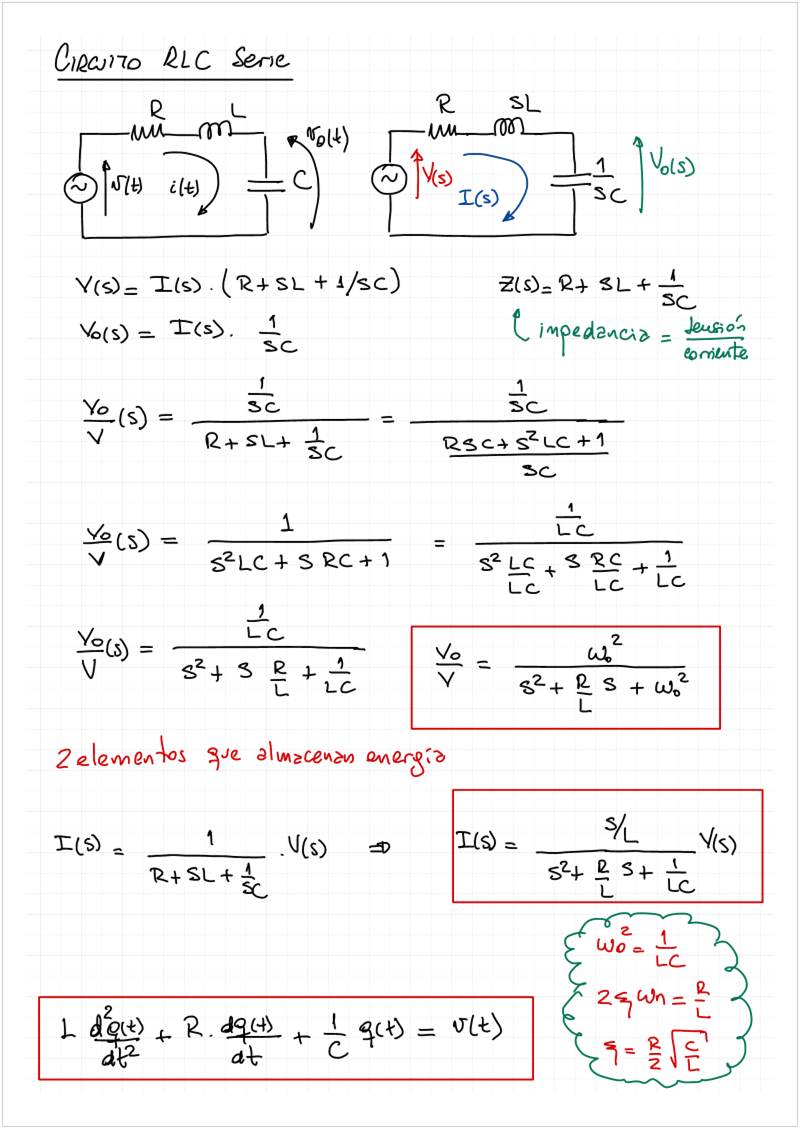 CIRCUITO RLC Serie
R L v(t) i(t) C v₀(t)
R SL V(s) I(s) 1/SC V₀(s)
V(s) = I(s) . (R + SL + 1/SC)
Z(s) = R + SL + 1/SC
V₀(s) = I(s) . 1/SC
impedancia = tensión/corriente
V₀/V (s) = (1/SC) / (R + SL + 1/SC) = (1/SC) / ((RSC + S²LC + 1)/SC)
V₀/V (s) = 1 / (S²LC + S RC + 1) = (1/LC) / (S² LC/LC + S RC/LC + 1/LC)
V₀/V (s) = (1/LC) / (S² + S R/L + 1/LC)
V₀/V = ω₀² / (S² + R/L S + ω₀²)
2 elementos que almacenan energía
I(s) = 1 / (R + SL + 1/SC) . V(s) ⇒ I(s) = (S/L) / (S² + R/L S + 1/LC) V(s)
ω₀² = 1/LC
2ξωn = R/L
ξ = R/2 √(C/L)
L d²q(t)/dt² + R . dq(t)/dt + 1/C q(t) = v(t)